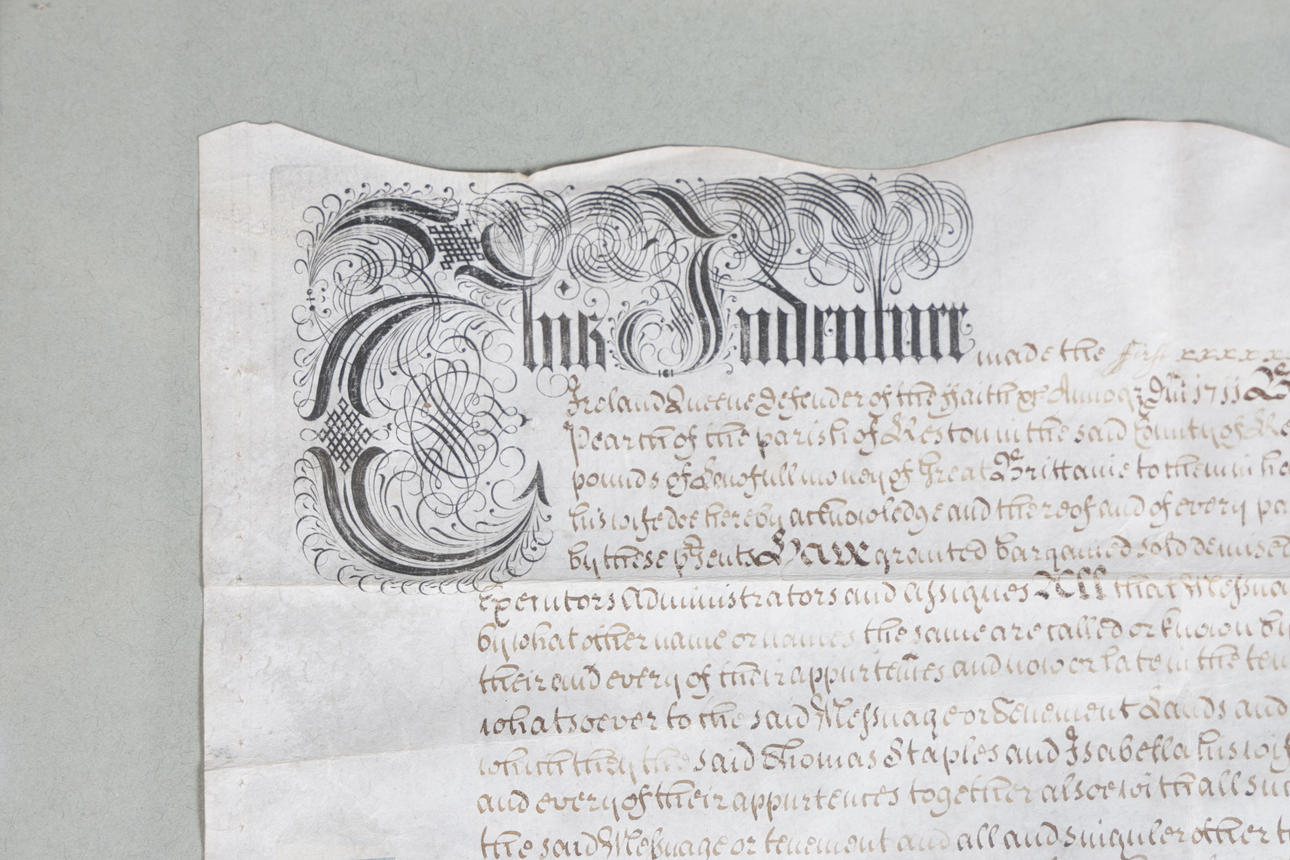 This Indenture made the first xxxxx
Ireland Queene Defender of the Faith &c Annoq Dni 1711 B
Pearth of the parish of Reston in the said County of We
pounds of Lawfull money of Great Brittanie to them in ha
his wife doe hereby acknowledge and thereof and of every pa
by these Psents Have granted bargained sold demised
executors Administrators and assignes All that Messua
by what other name or names the same are called or known by
their and every of their appurtences and now or late in the ten
whatsoever to the said Messuage or Tenement Lands and
which they the said Thomas Staples and Isabella his wife
and every of their appurtences together alsoe with all suc
the said Messuage or tenement and all and singuler other t